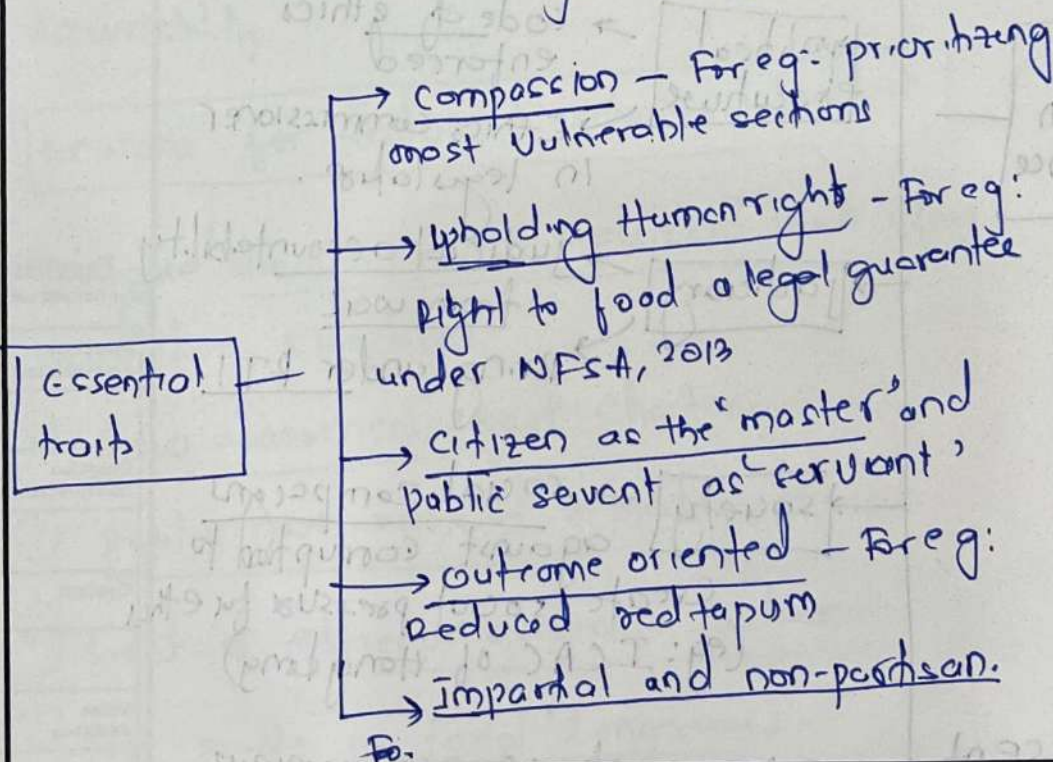 → Compassion – For eg:- prioritizing
most Vulnerable sections
→ Upholding Human right – For eg:
Right to food a legal guarantee
under NFSA, 2013
Essential
traits
→ Citizen as the 'master' and
public servant as 'servant'
→ Outcome oriented – For eg:
Reduced redtapism
→ Impartial and non-partisan.
Fo.